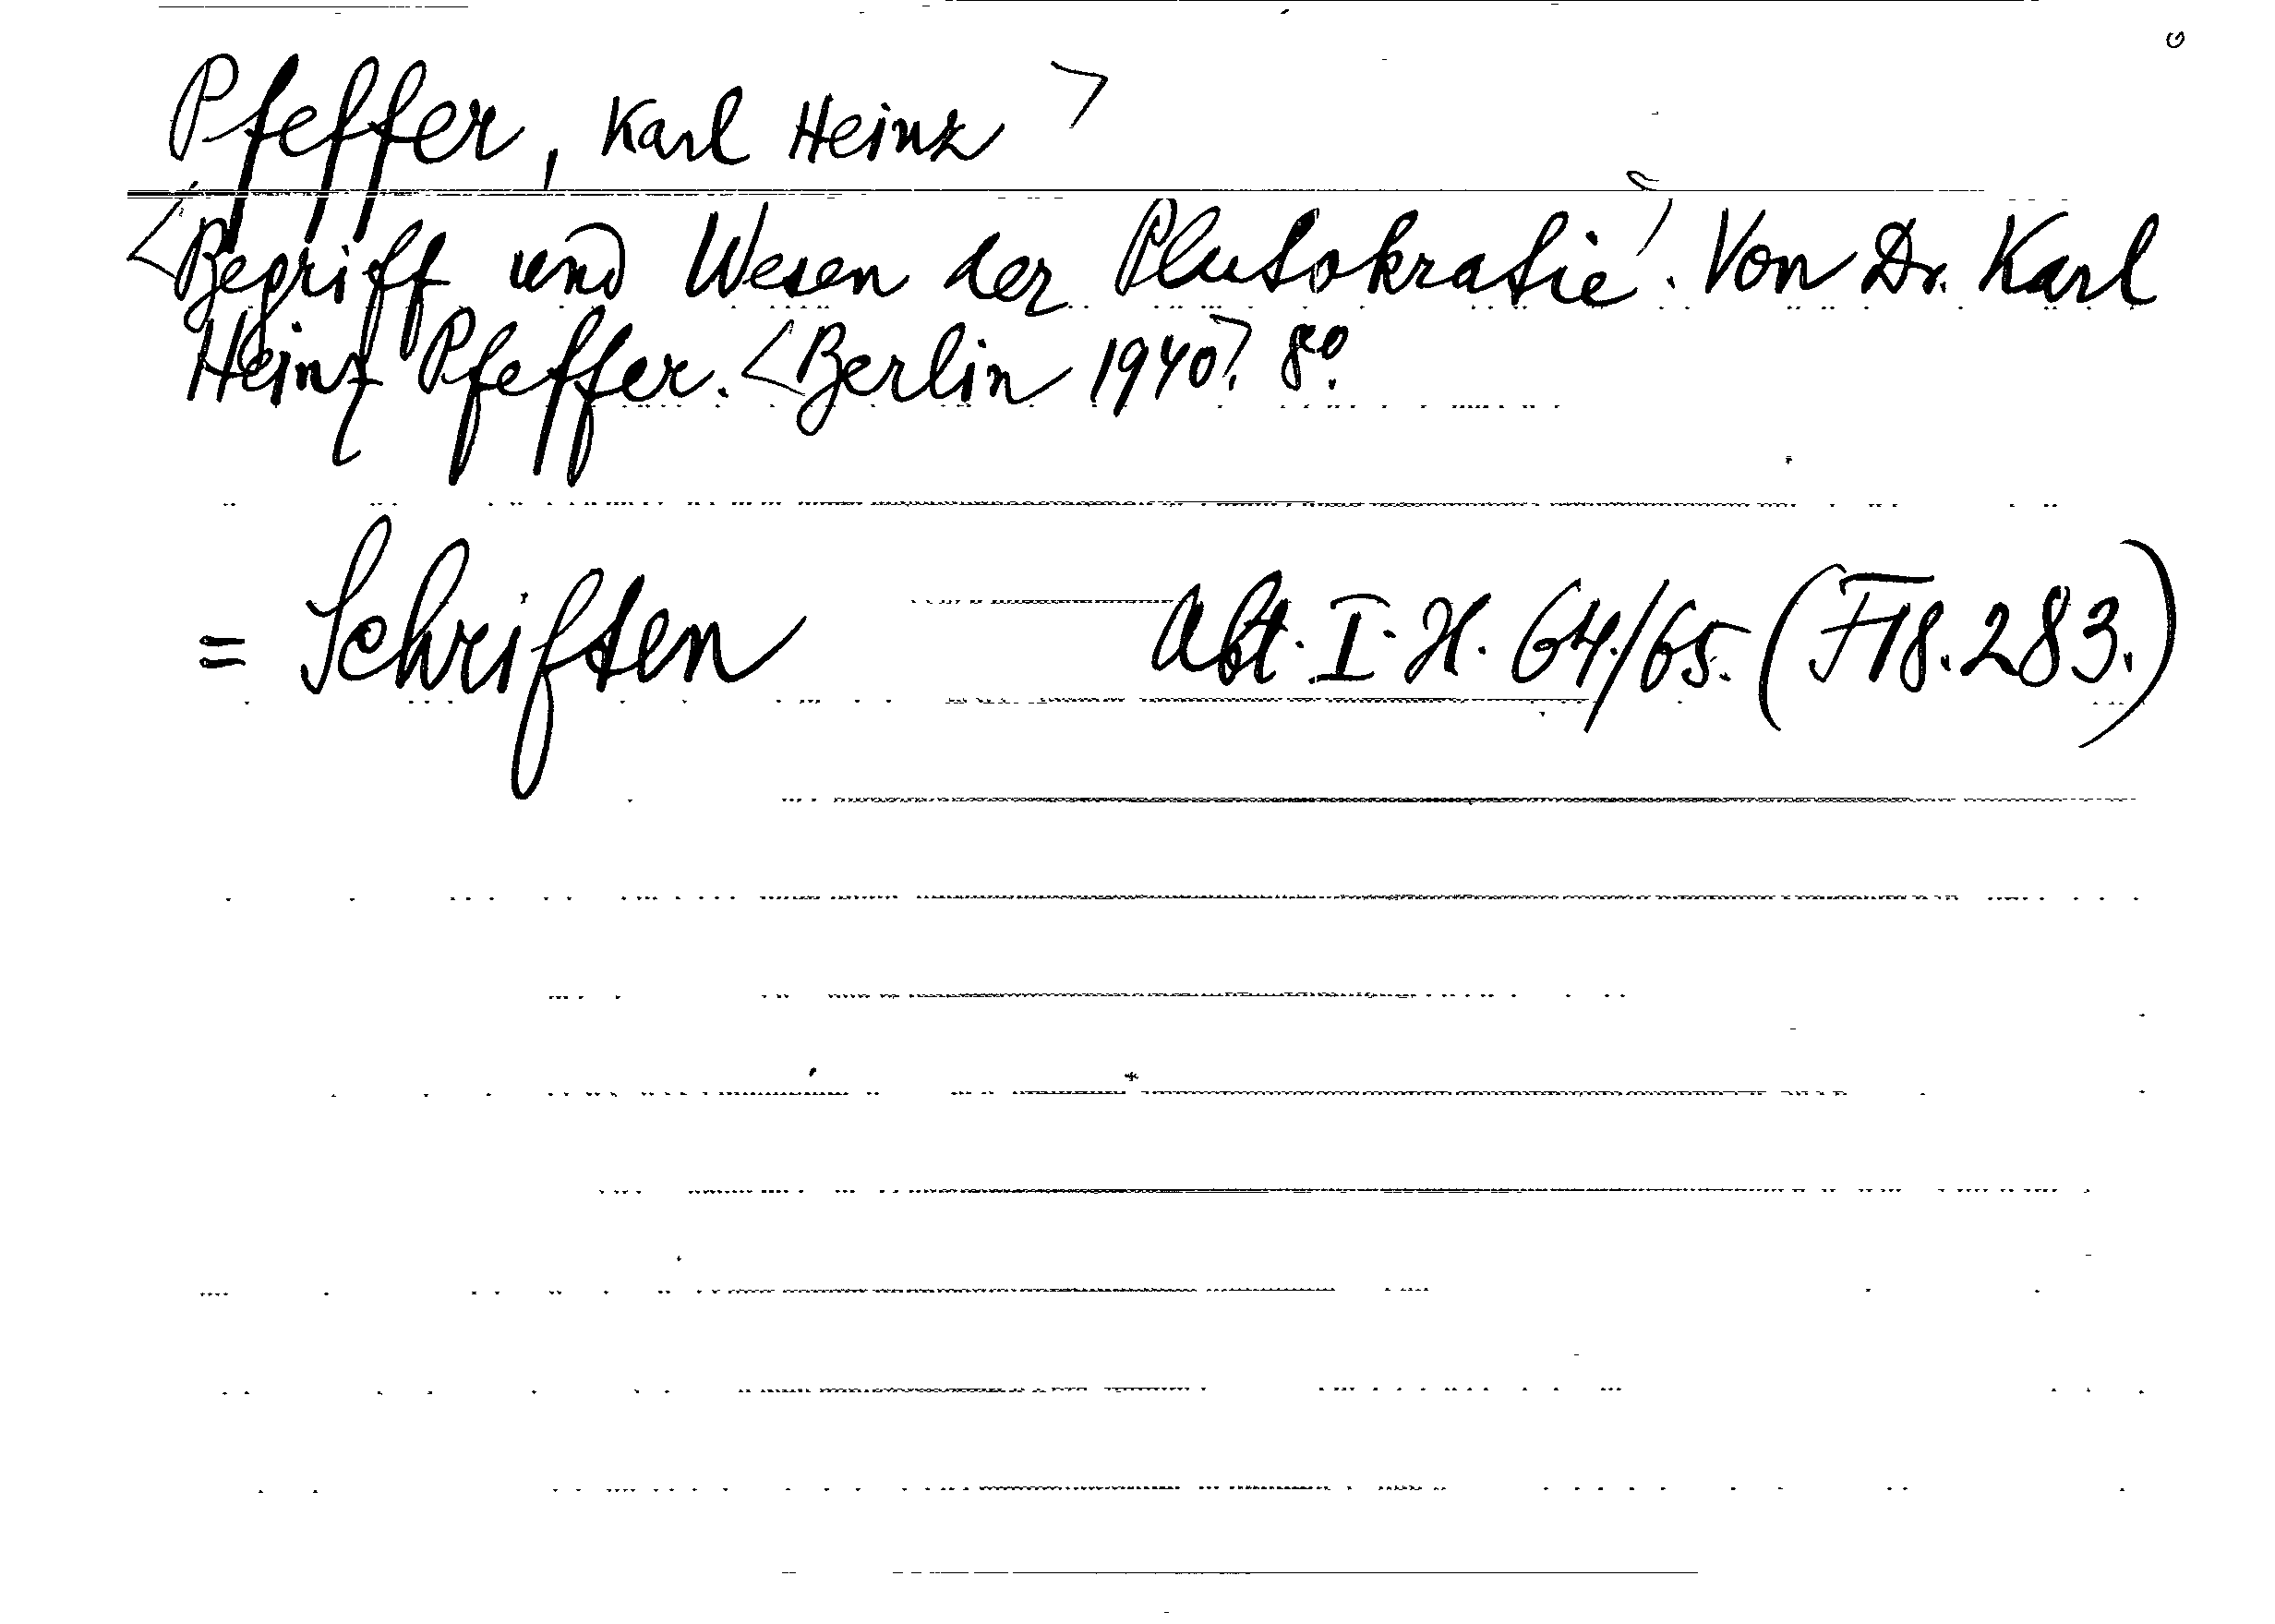 Pfeffer, Karl Heinz >
<Begriff und Wesen der Plutokratie>. Von Dr. Karl
Heinz Pfeffer. <Berlin 1940>. 8º.
= Schriften Abt. I. H. 64./65. (F18.283.)